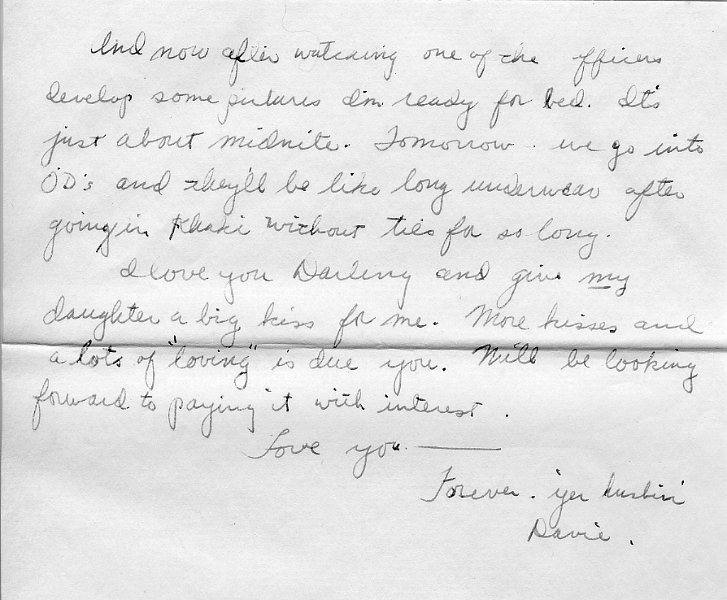 And now after watching one of the officers
develop some pictures I'm ready for bed. It's
just about midnite. Tomorrow we go into
OD's and they'll be like long underwear after
going in Khaki without ties for so long.
I love you Darling and give my
daughter a big kiss for me. More kisses and
a lots of "loving" is due you. Will be looking
forward to paying it with interest.
Love you ———
Forever. 'yer husbin'
Davie.